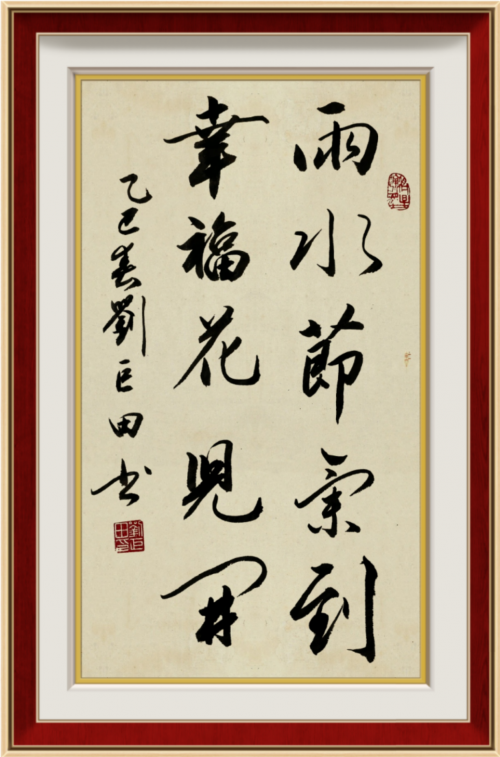 雨水節氣到
幸福花兒開
乙巳春劉巨田书